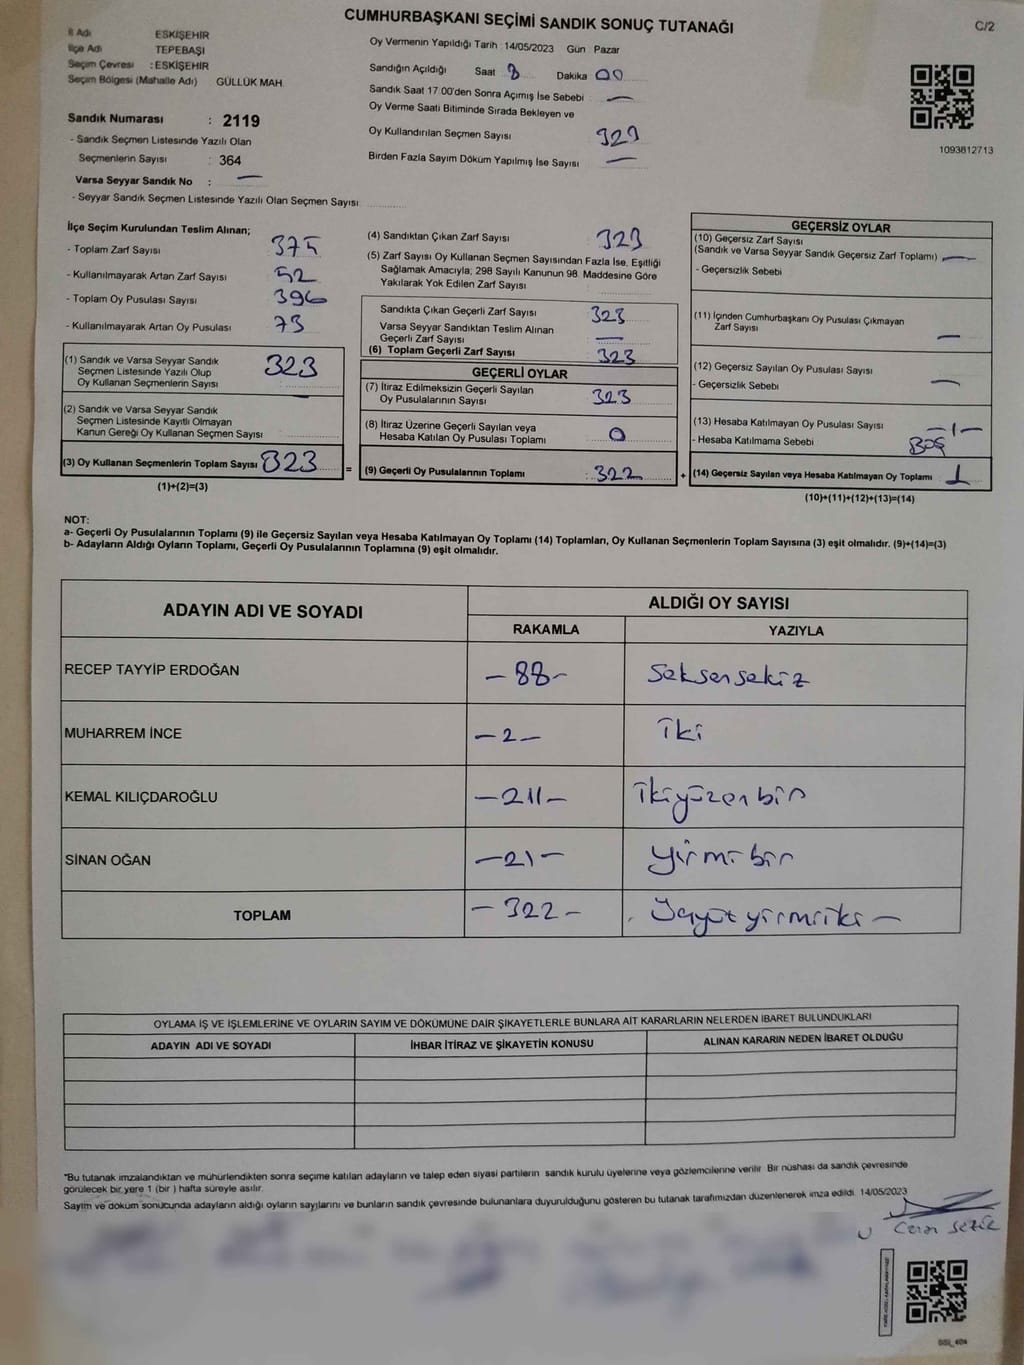 CUMHURBAŞKANI SEÇİMİ SANDIK SONUÇ TUTANAĞI
C/2
İl Adı ESKİŞEHİR
İlçe Adı TEPEBAŞI
Seçim Çevresi : ESKİŞEHİR
Seçim Bölgesi (Mahalle Adı) GÜLLÜK MAH.
Sandık Numarası : 2119
- Sandık Seçmen Listesinde Yazılı Olan
Seçmenlerin Sayısı : 364
Varsa Seyyar Sandık No : —
- Seyyar Sandık Seçmen Listesinde Yazılı Olan Seçmen Sayısı
Oy Vermenin Yapıldığı Tarih : 14/05/2023 Gün Pazar
Sandığın Açıldığı Saat 8 Dakika 00
Sandık Saat 17.00'den Sonra Açımış İse Sebebi —
Oy Verme Saati Bitiminde Sırada Bekleyen ve
Oy Kullandırılan Seçmen Sayısı 323
Birden Fazla Sayım Döküm Yapılmış İse Sayısı —
1093812713
İlçe Seçim Kurulundan Teslim Alınan;
- Toplam Zarf Sayısı 375
- Kullanılmayarak Artan Zarf Sayısı 52
- Toplam Oy Pusulası Sayısı 396
- Kullanılmayarak Artan Oy Pusulası 73
(1) Sandık ve Varsa Seyyar Sandık
Seçmen Listesinde Yazılı Olup
Oy Kullanan Seçmenlerin Sayısı 323
(2) Sandık ve Varsa Seyyar Sandık
Seçmen Listesinde Kayıtlı Olmayan
Kanun Gereği Oy Kullanan Seçmen Sayısı
(3) Oy Kullanan Seçmenlerin Toplam Sayısı 323 =
(1)+(2)=(3)
(4) Sandıktan Çıkan Zarf Sayısı 323
(5) Zarf Sayısı Oy Kullanan Seçmen Sayısından Fazla İse, Eşitliği
Sağlamak Amacıyla; 298 Sayılı Kanunun 98. Maddesine Göre
Yakılarak Yok Edilen Zarf Sayısı
Sandıkta Çıkan Geçerli Zarf Sayısı 323
Varsa Seyyar Sandıktan Teslim Alınan
Geçerli Zarf Sayısı —
(6) Toplam Geçerli Zarf Sayısı 323
GEÇERLİ OYLAR
(7) İtiraz Edilmeksizin Geçerli Sayılan
Oy Pusulalarının Sayısı 323
(8) İtiraz Üzerine Geçerli Sayılan veya
Hesaba Katılan Oy Pusulası Toplamı 0
(9) Geçerli Oy Pusulalarının Toplamı : 322 +
GEÇERSİZ OYLAR
(10) Geçersiz Zarf Sayısı
(Sandık ve Varsa Seyyar Sandık Geçersiz Zarf Toplamı) —
- Geçersizlik Sebebi
(11) İçinden Cumhurbaşkanı Oy Pusulası Çıkmayan
Zarf Sayısı —
(12) Geçersiz Sayılan Oy Pusulası Sayısı —
- Geçersizlik Sebebi
(13) Hesaba Katılmayan Oy Pusulası Sayısı -1-
- Hesaba Katılmama Sebebi BOŞ
(14) Geçersiz Sayılan veya Hesaba Katılmayan Oy Toplamı 1
(10)+(11)+(12)+(13)=(14)
NOT:
a- Geçerli Oy Pusulalarının Toplamı (9) ile Geçersiz Sayılan veya Hesaba Katılmayan Oy Toplamı (14) Toplamları, Oy Kullanan Seçmenlerin Toplam Sayısına (3) eşit olmalıdır. (9)+(14)=(3)
b- Adayların Aldığı Oyların Toplamı, Geçerli Oy Pusulalarının Toplamına (9) eşit olmalıdır.
ADAYIN ADI VE SOYADI ALDIĞI OY SAYISI
RAKAMLA YAZIYLA
RECEP TAYYİP ERDOĞAN -88- Seksensekiz
MUHARREM İNCE -2- İki
KEMAL KILIÇDAROĞLU -211- İkiyüzonbir
SİNAN OĞAN -21- Yirmibir
TOPLAM -322- Üçyüzyirmiiki -
OYLAMA İŞ VE İŞLEMLERİNE VE OYLARIN SAYIM VE DÖKÜMÜNE DAİR ŞİKAYETLERLE BUNLARA AİT KARARLARIN NELERDEN İBARET BULUNDUKLARI
ADAYIN ADI VE SOYADI İHBAR İTİRAZ VE ŞİKAYETİN KONUSU ALINAN KARARIN NEDEN İBARET OLDUĞU
*Bu tutanak imzalandıktan ve mühürlendikten sonra seçime katılan adayların ve talep eden siyasi partilerin sandık kurulu üyelerine veya gözlemcilerine verilir. Bir nüshası da sandık çevresinde
görülecek bir yere 1 (bir ) hafta süreyle asılır.
Sayım ve döküm sonucunda adayların aldığı oyların sayılarını ve bunların sandık çevresinde bulunanlara duyurulduğunu gösteren bu tutanak tarafımızdan düzenlenerek imza edildi. 14/05/2023